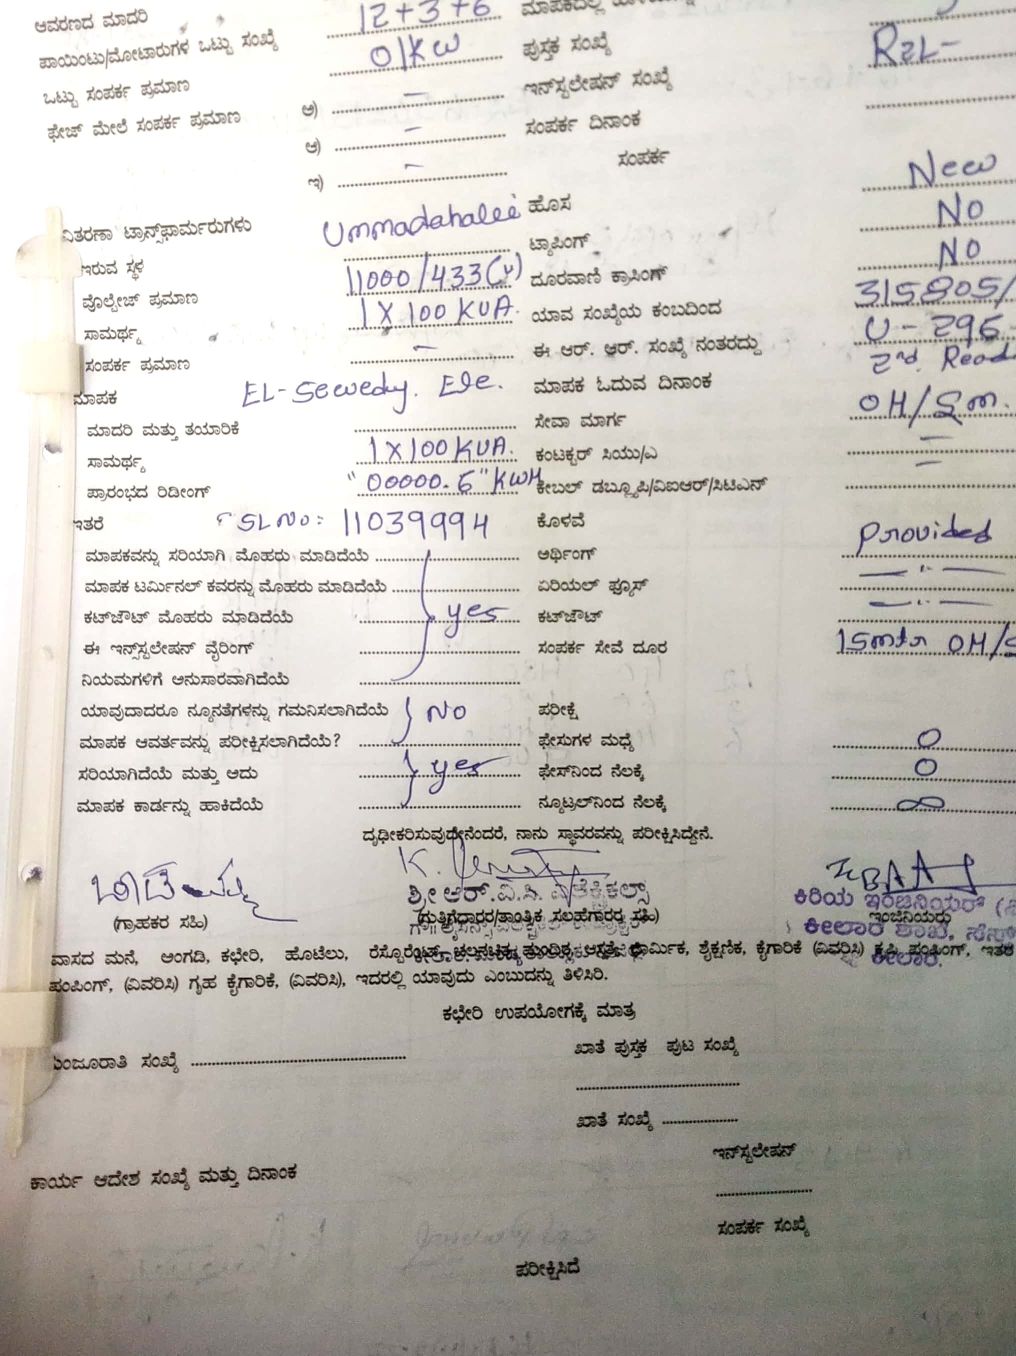 ಆವರಣದ ಮಾದರಿ 12+3+6
ಪಾಯಿಂಟು/ಮೋಟಾರುಗಳ ಒಟ್ಟು ಸಂಖ್ಯೆ 01KW ಪುಸ್ತಕ ಸಂಖ್ಯೆ
ಒಟ್ಟು ಸಂಪರ್ಕ ಪ್ರಮಾಣ ಅ) – ಇನ್‌ಸ್ಟಲೇಷನ್ ಸಂಖ್ಯೆ
ಫೇಜ್ ಮೇಲೆ ಸಂಪರ್ಕ ಪ್ರಮಾಣ ಆ) – ಸಂಪರ್ಕ ದಿನಾಂಕ
ಇ) – ಸಂಪರ್ಕ
ವಿತರಣಾ ಟ್ರಾನ್ಸ್‌ಫಾರ್ಮರುಗಳು Ummadahalli ಹೊಸ New
ಇರುವ ಸ್ಥಳ ಟ್ಯಾಪಿಂಗ್ No
ವೊಲ್ಟೇಜ್ ಪ್ರಮಾಣ 11000/433(v) ದೂರವಾಣಿ ಕ್ರಾಸಿಂಗ್ No
ಸಾಮರ್ಥ್ಯ 1X100KVA. ಯಾವ ಸಂಖ್ಯೆಯ ಕಂಬದಿಂದ 315805/
ಸಂಪರ್ಕ ಪ್ರಮಾಣ – ಈ ಆರ್. ಆರ್. ಸಂಖ್ಯೆ ನಂತರದ್ದು U-296
ಮಾಪಕ EL-Sewedy. Ele. ಮಾಪಕ ಓದುವ ದಿನಾಂಕ 2nd. Read
ಮಾದರಿ ಮತ್ತು ತಯಾರಿಕೆ ಸೇವಾ ಮಾರ್ಗ OH/Sm.
ಸಾಮರ್ಥ್ಯ 1X100KVA. ಕಂಟಕ್ಟರ್ ಸಿಯು/ಎ –
ಪ್ರಾರಂಭದ ರಿಡೀಂಗ್ "00000.6" KWH ಕೇಬಲ್ ಡಬ್ಲ್ಯೂಪಿ/ವಿಐಆರ್/ಸಿಟಿಎನ್ –
ಇತರೆ SL No: 11039994 ಕೊಳವೆ
ಮಾಪಕವನ್ನು ಸರಿಯಾಗಿ ಮೊಹರು ಮಾಡಿದೆಯೆ ಅರ್ಥಿಂಗ್ provided
ಮಾಪಕ ಟರ್ಮಿನಲ್ ಕವರನ್ನು ಮೊಹರು ಮಾಡಿದೆಯೆ ಏರಿಯಲ್ ಫ್ಯೂಸ್ —"—
ಕಟ್‌ಜೌಟ್ ಮೊಹರು ಮಾಡಿದೆಯೆ yes ಕಟ್‌ಜೌಟ್ —"—
ಈ ಇನ್ಸ್‌ಸ್ಟಲೇಷನ್ ವೈರಿಂಗ್ ಸಂಪರ್ಕ ಸೇವೆ ದೂರ 15mtr OH/S
ನಿಯಮಗಳಿಗೆ ಅನುಸಾರವಾಗಿದೆಯೆ
ಯಾವುದಾದರೂ ನ್ಯೂನತೆಗಳನ್ನು ಗಮನಿಸಲಾಗಿದೆಯೆ No ಪರೀಕ್ಷೆ
ಮಾಪಕ ಆವರ್ತವನ್ನು ಪರೀಕ್ಷಿಸಲಾಗಿದೆಯೆ? ಫೇಸುಗಳ ಮಧ್ಯೆ 0
ಸರಿಯಾಗಿದೆಯೆ ಮತ್ತು ಆದು yes ಫೇಸ್‌ನಿಂದ ನೆಲಕ್ಕೆ 0
ಮಾಪಕ ಕಾರ್ಡನ್ನು ಹಾಕಿದೆಯೆ ನ್ಯೂಟ್ರಲ್‌ನಿಂದ ನೆಲಕ್ಕೆ ∞
ದೃಢೀಕರಿಸುವುದೇನೆಂದರೆ, ನಾನು ಸ್ಥಾವರವನ್ನು ಪರೀಕ್ಷಿಸಿದ್ದೇನೆ.
ಶ್ರೀ ಆರ್.ವಿ.ಸಿ. ಎಲೆಕ್ಟ್ರಿಕಲ್ಸ್ ಕಿರಿಯ ಇಂಜಿನಿಯರ್
(ಗ್ರಾಹಕರ ಸಹಿ) (ಗುತ್ತಿಗೆದಾರರ/ತಾಂತ್ರಿಕ ಸಲಹೆಗಾರರ ಸಹಿ) ಇಂಜಿನಿಯರು
ಕೀಲಾರ ಶಾಖೆ,
ವಾಸದ ಮನೆ, ಅಂಗಡಿ, ಕಛೇರಿ, ಹೊಟೆಲು, ರೆಸ್ಟೋರೆಂಟ್, ಚಲನಚಿತ್ರ ಮಂದಿರ, ಆಸ್ಪತ್ರೆ, ಧಾರ್ಮಿಕ, ಶೈಕ್ಷಣಿಕ, ಕೈಗಾರಿಕೆ (ವಿವರಿಸಿ) ಕೃಷಿ ಪಂಪಿಂಗ್, ಇತರ
ಕೀಲಾರ.
ಪಂಪಿಂಗ್, (ವಿವರಿಸಿ) ಗೃಹ ಕೈಗಾರಿಕೆ, (ವಿವರಿಸಿ), ಇದರಲ್ಲಿ ಯಾವುದು ಎಂಬುದನ್ನು ತಿಳಿಸಿರಿ.
ಕಛೇರಿ ಉಪಯೋಗಕ್ಕೆ ಮಾತ್ರ
ಮಂಜೂರಾತಿ ಸಂಖ್ಯೆ ಖಾತೆ ಪುಸ್ತಕ ಪುಟ ಸಂಖ್ಯೆ
ಖಾತೆ ಸಂಖ್ಯೆ
ಇನ್‌ಸ್ಟಲೇಷನ್
ಕಾರ್ಯ ಆದೇಶ ಸಂಖ್ಯೆ ಮತ್ತು ದಿನಾಂಕ
ಸಂಪರ್ಕ ಸಂಖ್ಯೆ
ಪರೀಕ್ಷಿಸಿದೆ